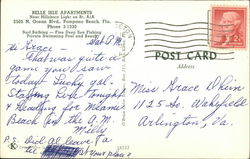 BELLE ISLE APARTMENTS
Near Hillsboro Light on Rt. A1A
1505 N. Ocean Blvd., Pompano Beach, Fla.
Phone 3-1330
Surf Bathing — Fine Deep Sea Fishing
Private Swimming Pool and Beach
Hi Grace -
That was quite a
game you & Jean
today. Lucky gal.
Staying here tonight
& Heading for Miami
Beach in the A.M.
Milly
P.S. Did Al leave
POST CARD
Address
Miss Grace
1125 So. Wakefield
Arlington, Va.